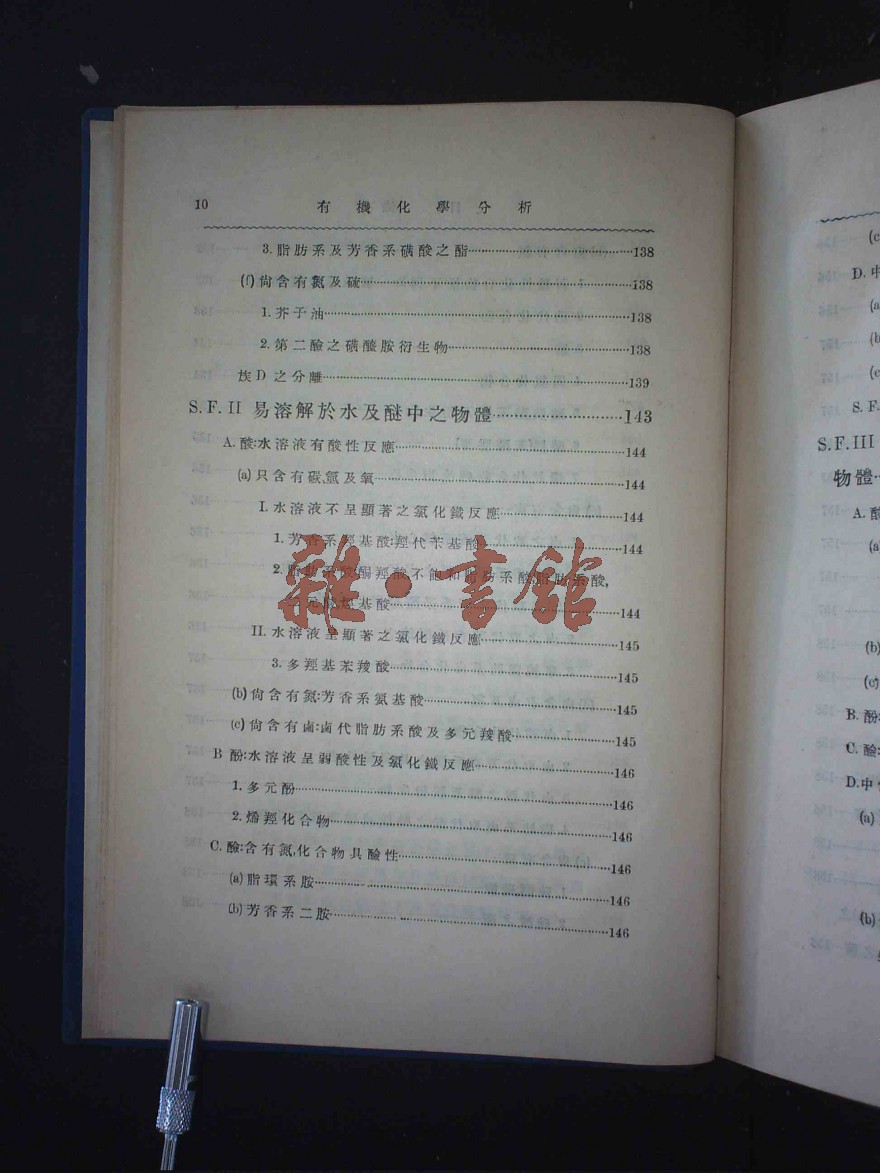 10 有機化學分析
3. 脂肪系及芳香系磺酸之酯……138
(f) 尙含有氮及硫……138
1. 芥子油……138
2. 第二鹼之磺醯胺衍生物……138
族 D 之分離……139
S. F. II 易溶解於水及醚中之物體……143
A. 酸:水溶液有酸性反應……144
(a) 只含有碳,氫及氧……144
I. 水溶液不呈顯著之氯化鐵反應……144
1. 芳香系羥基酸:羥代苄基酸……144
2. 酮羥酸不飽和脂肪系酸,脂肪系酸,
元酸,羥基酸……144
II. 水溶液呈顯著之氯化鐵反應……145
3. 多羥基苯羧酸……145
(b) 尙含有氮:芳香系氨基酸……145
(c) 尙含有鹵:鹵代脂肪系酸及多元羧酸……145
B 酚:水溶液呈弱酸性及氯化鐵反應……146
1. 多元酚……146
2. 烯羥化合物……146
C. 鹼:含有氮,化合物具鹼性……146
(a) 脂環系胺……146
(b) 芳香系二胺……146
雜·書館
(c
D. 中
(a
(b
(c
S. F.
S. F. III
物體…
A. 酸
(a
(b)
(c)
B. 酚
C. 鹼:
D. 中
(a)
(b)